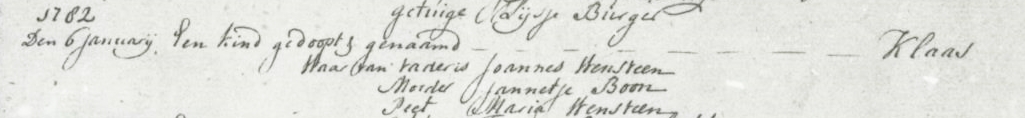 getuige Tijsje Burger
1782
Den 6 Januarij. Een kind gedoopt genaamd Klaas
Waar van vader is Joannes Wensteen
Moeder Jannetje Boon
Peet Maria Wensteen